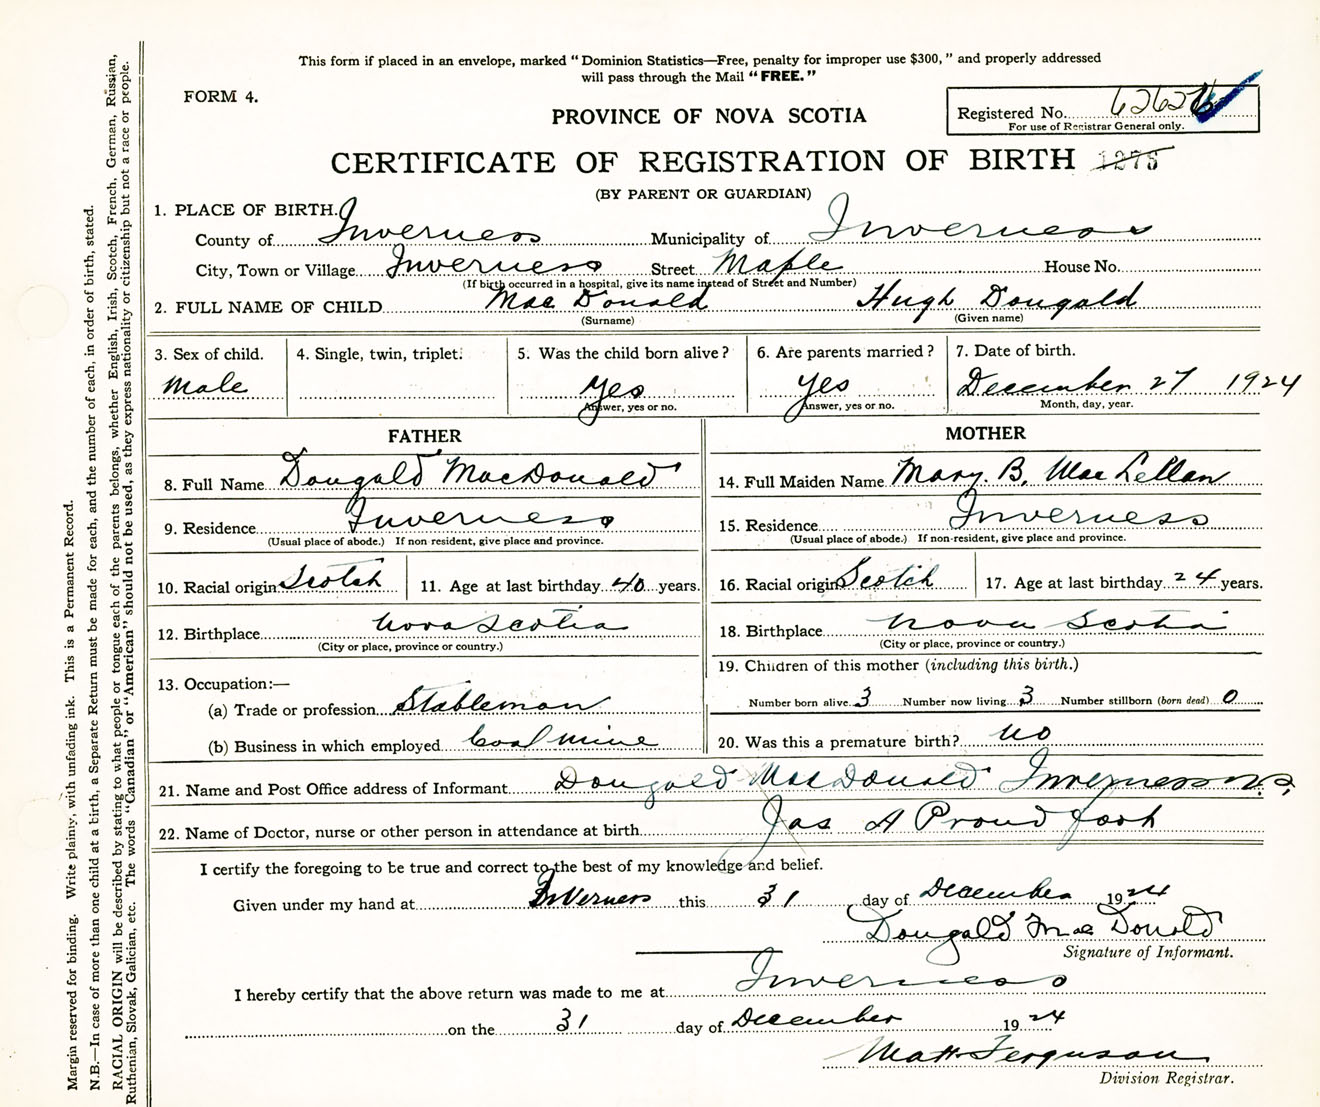 This form if placed in an envelope, marked “Dominion Statistics—Free, penalty for improper use $300,” and properly addressed
will pass through the Mail “FREE.”
FORM 4.
PROVINCE OF NOVA SCOTIA
Registered No.
For use of Registrar General only.
CERTIFICATE OF REGISTRATION OF BIRTH 1275
(BY PARENT OR GUARDIAN)
1. PLACE OF BIRTH.
County of Inverness Municipality of Inverness
City, Town or Village Inverness Street Maple House No.
(If birth occurred in a hospital, give its name instead of Street and Number)
2. FULL NAME OF CHILD MacDonald Hugh Dougald
(Surname) (Given name)
3. Sex of child. 4. Single, twin, triplet. 5. Was the child born alive? 6. Are parents married? 7. Date of birth.
Male Yes Yes December 27 1924
Answer, yes or no. Answer, yes or no. Month, day, year.
FATHER MOTHER
8. Full Name Dougald MacDonald 14. Full Maiden Name Mary. B. MacLellan
9. Residence Inverness 15. Residence Inverness
(Usual place of abode.) If non-resident, give place and province. (Usual place of abode.) If non-resident, give place and province.
10. Racial origin Scotch 11. Age at last birthday 40 years. 16. Racial origin Scotch 17. Age at last birthday 24 years.
12. Birthplace Nova Scotia 18. Birthplace Nova Scotia
(City or place, province or country.) (City or place, province or country.)
19. Children of this mother (including this birth.)
13. Occupation:—
(a) Trade or profession Stableman Number born alive 3 Number now living 3 Number stillborn (born dead) 0
(b) Business in which employed Coal mine 20. Was this a premature birth? no
21. Name and Post Office address of Informant Dougald MacDonald Inverness N.S.
22. Name of Doctor, nurse or other person in attendance at birth Jas A Proudfoot
I certify the foregoing to be true and correct to the best of my knowledge and belief.
Given under my hand at Inverness this 31 day of December 1924
Dougald MacDonald
Signature of Informant.
I hereby certify that the above return was made to me at Inverness
on the 31 day of December 1924
Matt Ferguson
Division Registrar.
Margin reserved for binding. Write plainly, with unfading ink. This is a Permanent Record.
N.B.—In case of more than one child at a birth, a Separate Return must be made for each, and the number of each, in order of birth, stated.
RACIAL ORIGIN will be described by stating to what people or tongue each of the parents belongs, whether English, Irish, Scotch, French, German, Russian,
Ruthenian, Slovak, Galician, etc. The words “Canadian” or “American” should not be used, as they express nationality or citizenship but not a race or people.